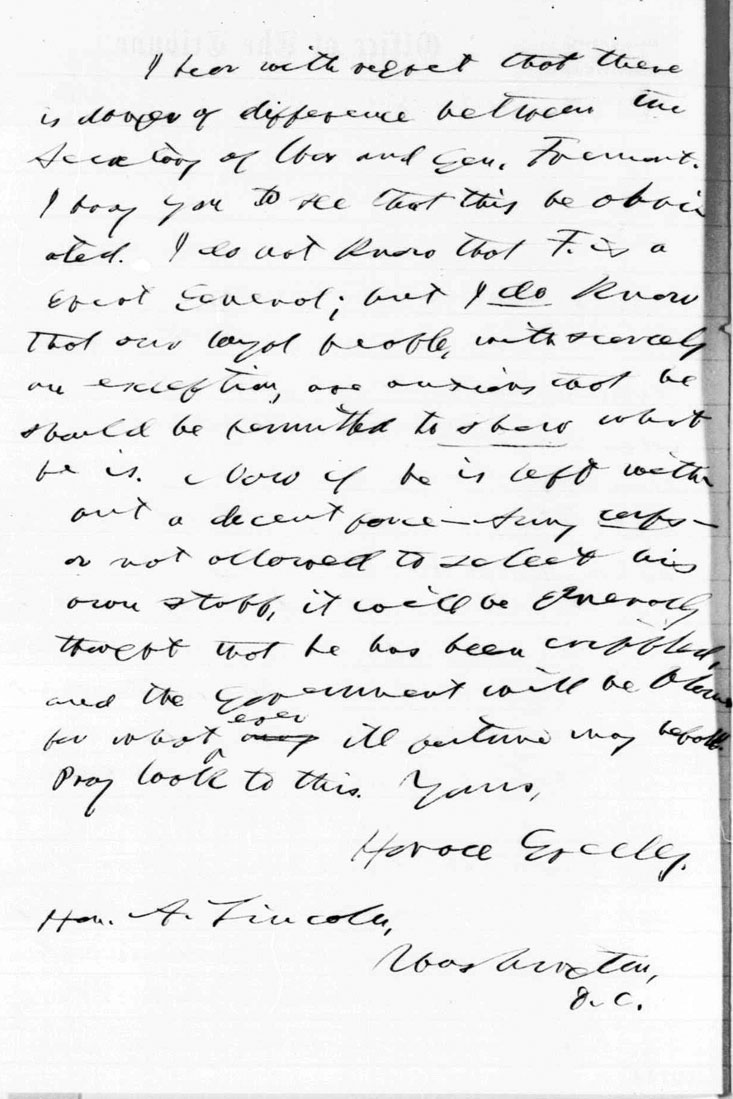 I hear with regret that there
is danger of difference between the
Secretary of War and Gen. Fremont.
I pray you to see that this be obvi
ated. I do not know that F. is a
great General; but I do know
that our loyal people, with scarcely
an exception, are anxious that he
should be permitted to show what
he is. Now if he is left with
out a decent force — Army corps —
or not allowed to select his
own staff, it will be generally
thought that he has been crippled,
and the Government will be blamed
for what ever any ill fortune may befall.
Pray look to this. Yours,
Horace Greeley.
Hon. A. Lincoln,
Washington,
D.C.